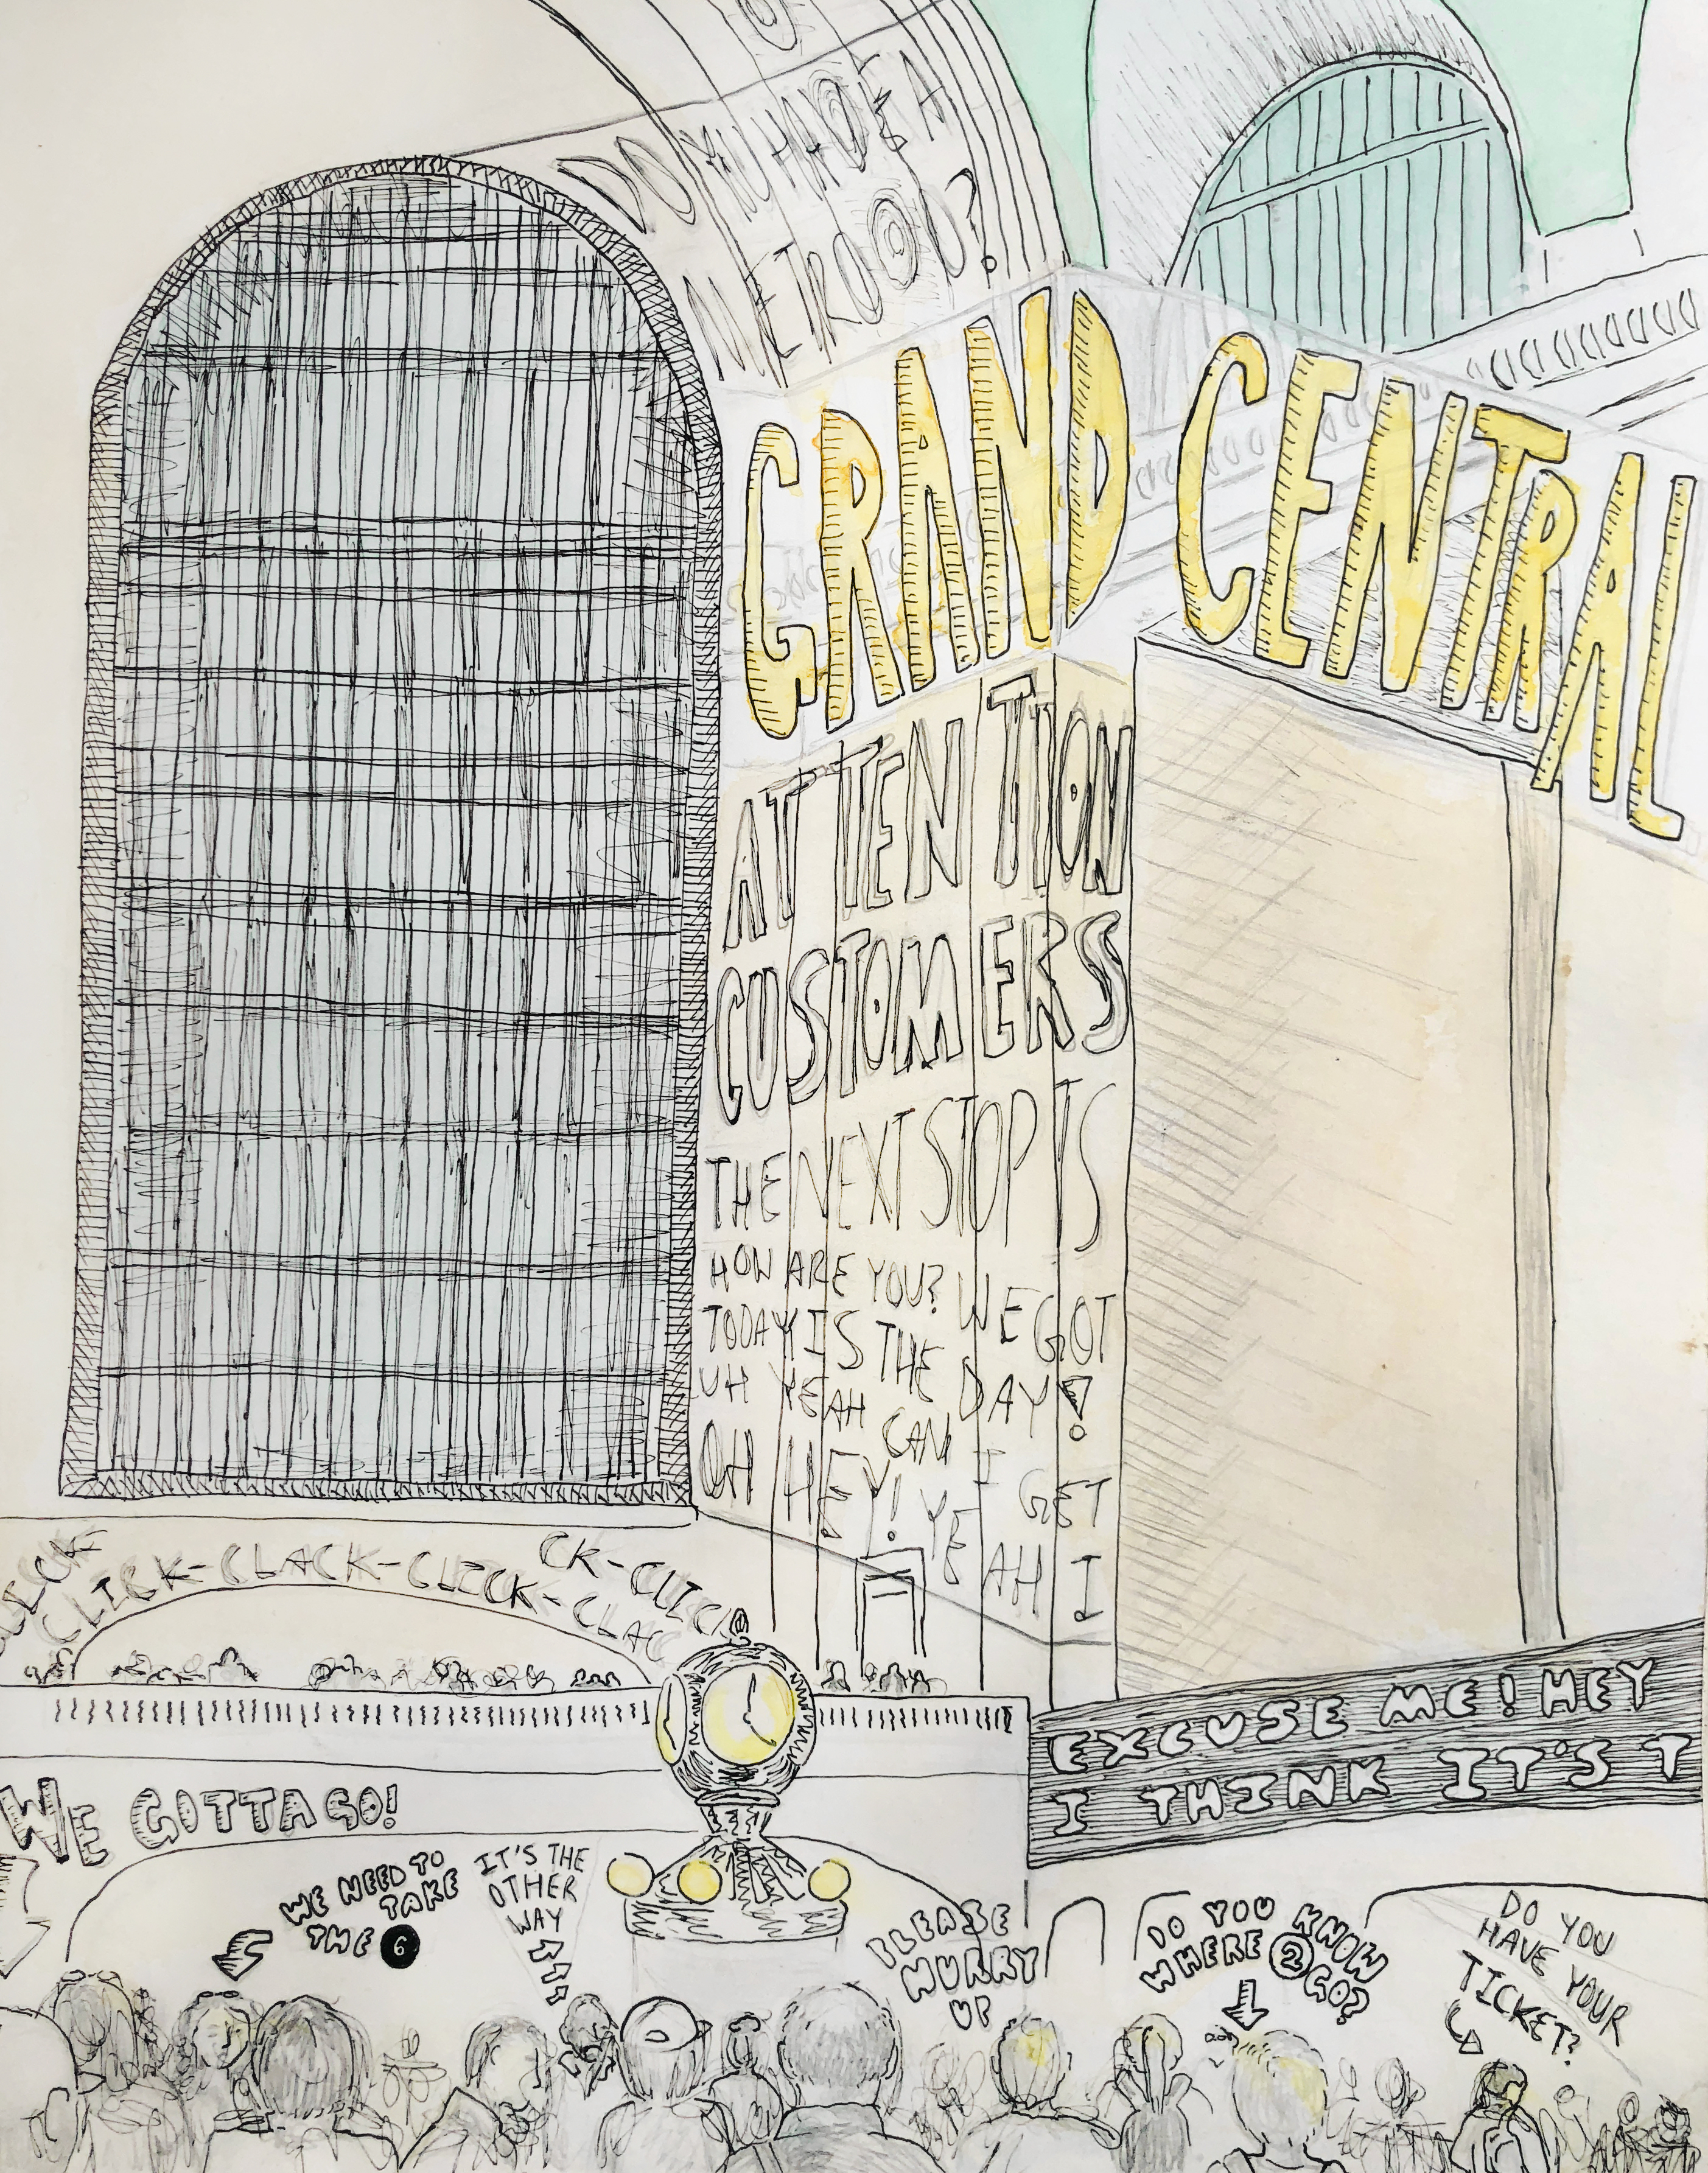 DO YOU HAVE A
METROCARD?
GRAND CENTRAL
ATTENTION
CUSTOMERS
THE NEXT STOP IS
HOW ARE YOU? WE GOT
TODAY IS THE DAY!
UH YEAH CAN I GET
OH HEY! YEAH I
CLICK-CLACK-CLICK-CLAC
CK-CLICK
EXCUSE ME! HEY
I THINK IT'S T
WE GOTTA GO!
WE NEED TO
TAKE
THE 6
IT'S THE
OTHER
WAY
PLEASE
HURRY
UP
DO YOU KNOW
WHERE 2 GO?
DO YOU
HAVE YOUR
TICKET?